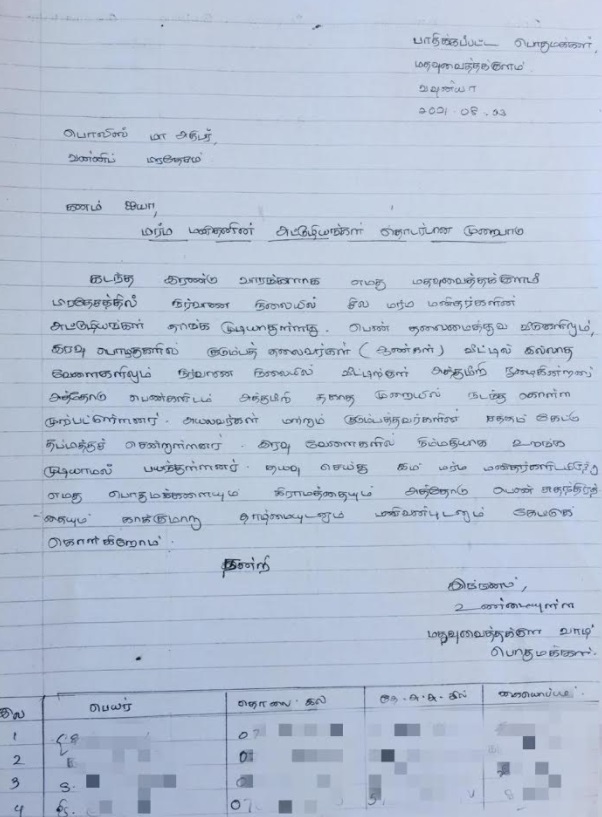 பாதிக்கப்பட்ட பொதுமக்கள்,
மதுவுவைத்தகுளம்
வவுனியா
2021.08.23
பொலிஸ் மா அதிபர்,
வன்னிப் பிரதேசம்
கணம் ஐயா,
மர்ம மனிதனின் அட்டூழியங்கள் தொடர்பான முறைப்பாடு
கடந்த இரண்டு வாரங்களாக எமது மதுவுவைத்தகுளம்
பிரதேசத்தில் நிர்வாண நிலையில் சில மர்ம மனிதர்களின்
அட்டூழியங்கள் தாங்க முடியாதுள்ளது. பெண் தலைமைத்துவ வீடுகளிலும்,
இரவு பொழுதுகளில் குடும்பத் தலைவர்கள் (ஆண்கள்) வீட்டில் இல்லாத
வேளைகளிலும் நிர்வாண நிலையில் வீட்டிற்குள் அத்துமீறி நுழைகின்றனர்
அத்தோடு பெண்களிடம் அத்துமீறி தகாத முறையில் நடந்து கொள்ள
முற்பட்டுள்ளனர். அயலவர்கள் மற்றும் குடும்பத்தவர்களின் சத்தம் கேட்டு
தப்பித்துச் சென்றுள்ளனர். இரவு வேளைகளில் நிம்மதியாக உறங்க
முடியாமல் பயந்துள்ளனர். தயவு செய்து இம் மர்ம மனிதர்களிடமிருந்து
எமது பொதுமக்களையும் கிராமத்தையும் அத்தோடு பெண் சுதந்திரத்
தையும் காக்குமாறு தாழ்மையுடனும் பணிவன்புடனும் கேட்டுக்
கொள்கிறோம்.
நன்றி
இங்ஙனம்,
உண்மையுள்ள
மதுவுவைத்தகுள வாழ்
பொதுமக்கள்.
இல பெயர் தொலை. இல தே.அ.அ.இல் கையொப்பம்
1 07
2 0
3 0
4 07